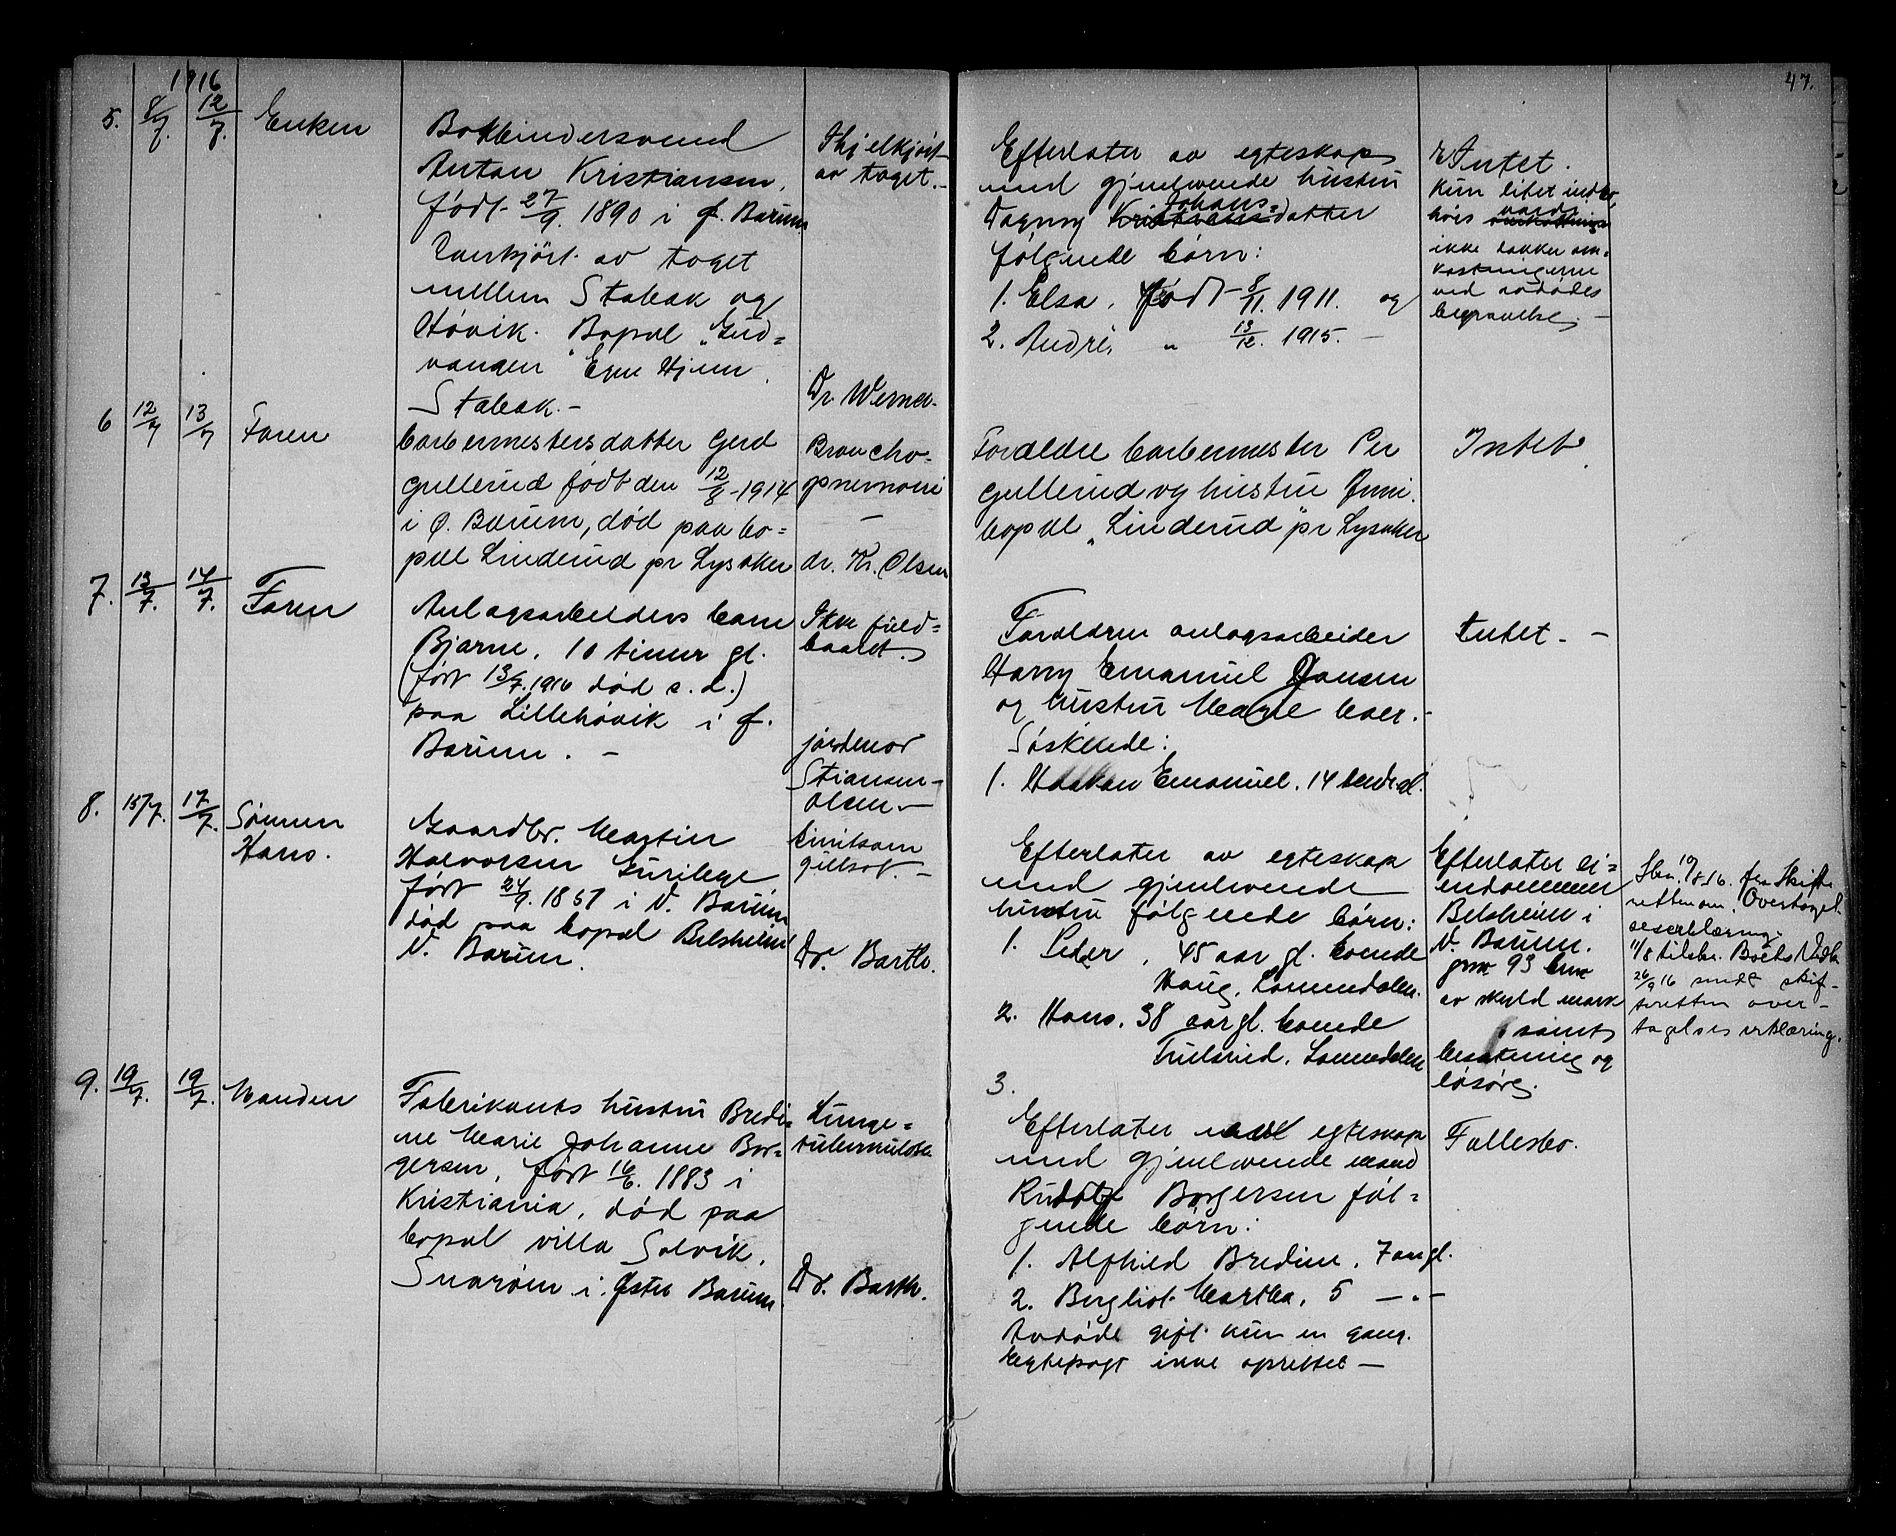 1916
47.
5. 8/7. 12/7. Enken
Bokbindersvend
Anton Kristiansen,
født 27/9. 1890 i Ø. Bærum
Overkjørt av toget
mellem Stabæk og
Høvik. Bopæl „Grud=
vangen" Egne Hjem,
Stabæk.-
Ihjelkjørt
av toget.-
Dr. Werner.
Efterlater av egteskap
med gjenlevende hustru
Dagny Kristiansdatter Johans=
følgende børn:
1. Elsa, født 8/11. 1911. og
2. André, " 13/12. 1915.-
Intet.
Kun litet indbo,
hvis værdi
ikke dækker om=
kostningerne
ved avdødes
begravelse.-
6 12/7 13/7 Faren
barbermestersdatter Gerd
Gullerud født den 12/8-1914
i Ø. Bærum, død paa bo=
pæl Linderud pr Lysaker
Broncho=
pnevmoni
-
dr. Kr. Olsen
Forældre barbermester Per
Gullerud og hustru Jenni.
bopæl „Linderud" pr Lysaker
Intet
7. 13/7. 14/7. Faren
Anlægsarbeiders barn
Bjarne, 10 timer gl.
(født 13/7. 1916 død s.d.)
paa Lillehøvik i Ø.
Bærum. -
Ikke fuld=
baaret.
jordmor
Stiansen-
Olsen.-
Forældrene anlægsarbeider
Harry Emanuel Jansen
og hustru Marie
Søskende:
1. Haakon Emanuel, 14 mndr gl.
Intet. -
8. 15/7. 17/7. Sønnen
Hans.
Gaardbr. Martin
Halvorsen
født 24/9. 1851 i V. Bærum
død paa bopæl Belsheim
V. Bærum.
Ondartet
gulsot. -
Dr. Barth.
Efterlater av egteskap
med gjenlevende
hustru følgende børn:
1. Peder, 45 aar gl. boende
Haug, Lommedalen.
2. Hans, 38 aar gl. boende
Lommedalen
3.
Efterlater ei=
endommen
Belsheim i
V. Bærum.
93
av skyld mark
samt
besætning og
løsøre.
10/8 16. fra Skifte
retten om Overtagel
seserklæring.
11/8
26/9 16 sendt skif-
teretten over-
tagelseserklæring.
9. 19/7. 19/7. Manden
Fabrikants hustru Bredi=
ne Marie Johanne Bor=
gersen, født 16/6. 1883 i
Kristiania, død paa
bopæl villa Solvik,
Snarøen i Østre Bærum.
Lunge=
tuberkulose
Dr. Barth.
Efterlater med egteskap
med gjenlevende mand
Rudolf Borgersen føl=
gende børn:
1. Alfhild Bredine, 7 aar gl.
2. Bergliot Martha, 5 -.-
Avdøde gift kun en gang.
Egtepagt ikke oprettet -
Fællesbo.